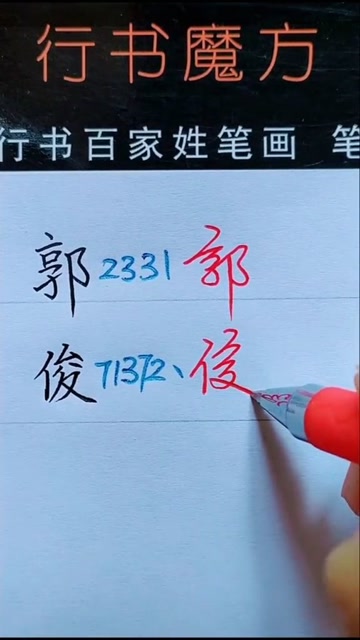 行书魔方
行书百家姓笔画 笔
郭 2331 郭
俊 71372、俊